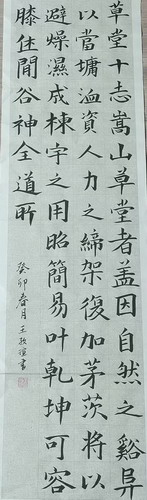 草堂十志嵩山草堂者盖因自然之谿阜
以當墉洫資人力之締架復加茅茨將以
避燥濕成棟宇之用昭簡易叶乾坤可容
膝休閒谷神全道所
癸卯春月王書